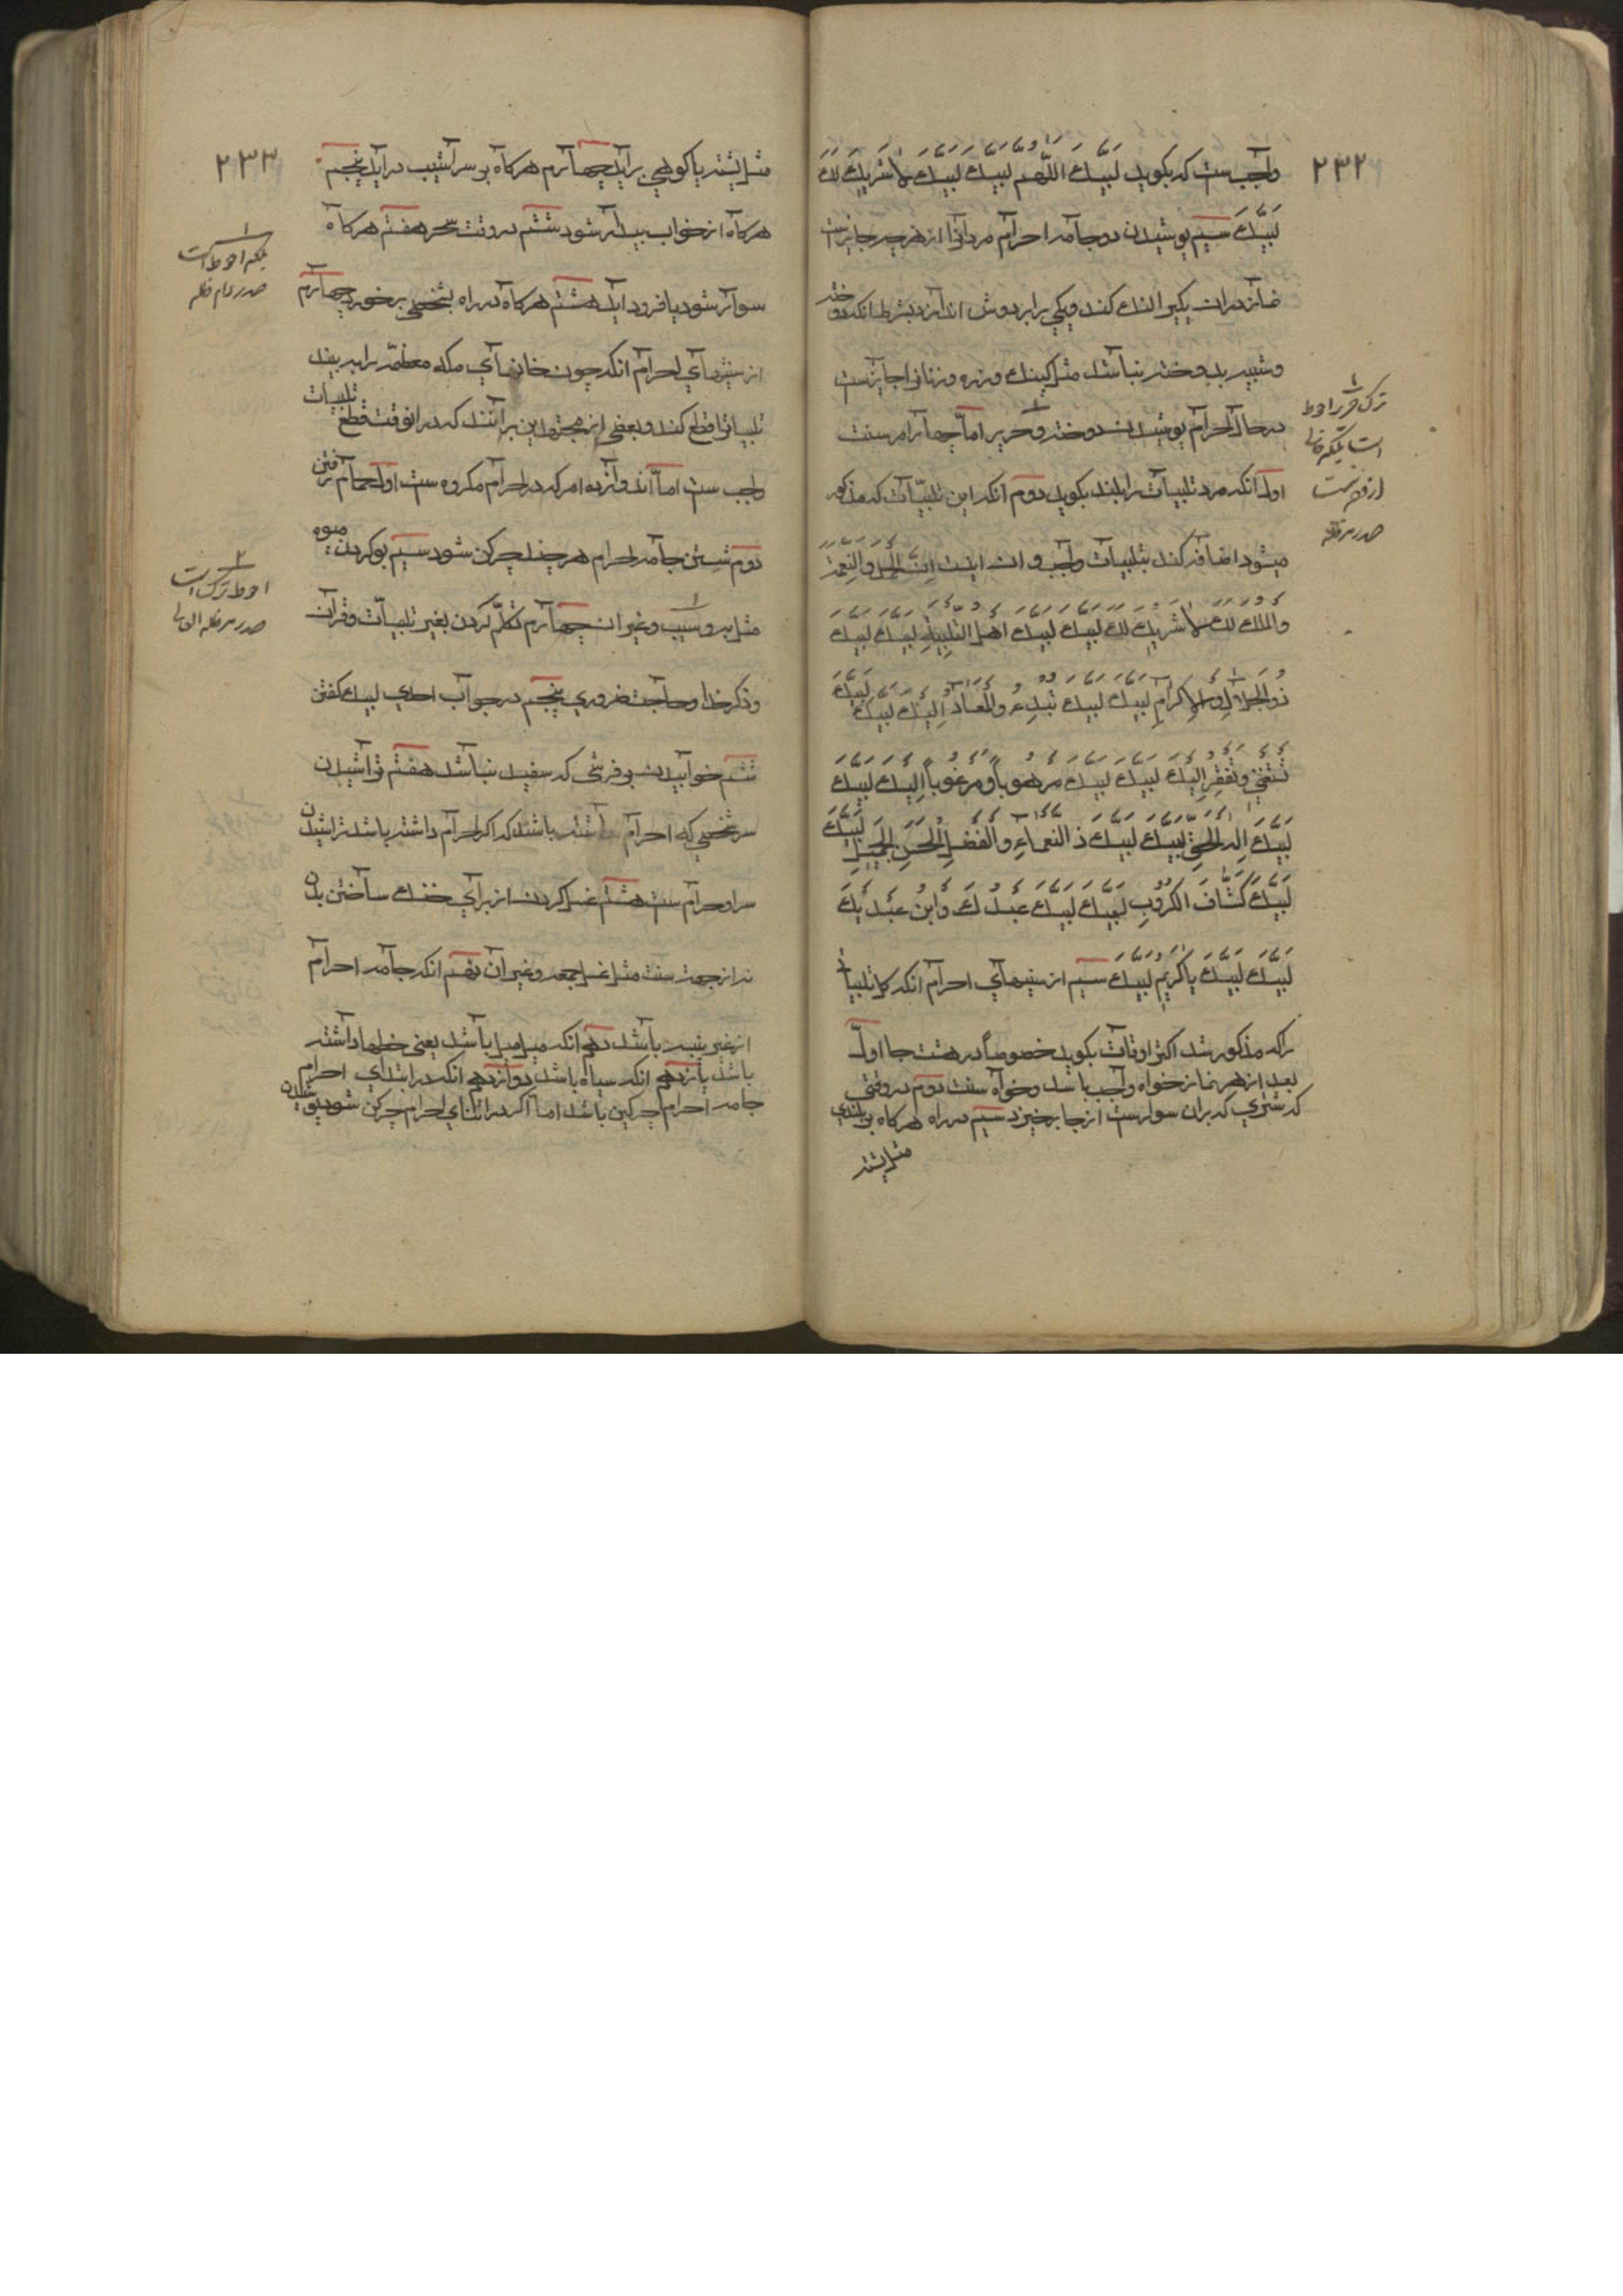 ۲۳۲
واجب ست که بکوید لَبَّیْكَ اللّٰهُمَّ لَبَّیْكَ لَبَّیْكَ لاشَرِیكَ لَكَ
لَبَّیْكَ سیم پوشیدن دو جامه احرام مردانرا از هر چه جایزست
نماز دران یکیرا لنك کند ویکی را بردوش اندازد بشرط انکه دوخته
وشبیه بدوخته نباشد مثل کپنك وزره وزنانرا جایزست
در حال احرام پوشیدن دوخته و حریر اما چهار امر سنت
اول انکه مرد تلبیات را بلند بکوید دوم انکه این تلبیات که مذکور
میشود اضافه کند بتلبیات واجب و ان اینست اِنَّ الحَمْدَ وَالنِّعْمَةَ
وَالمُلْكَ لَكَ لاشَرِیكَ لَكَ لَبَّیْكَ لَبَّیْكَ اهل التلبیة لَبَّیْكَ لَبَّیْكَ
ذو الجلال والاکرام لبیك لبیك تبدء والمعاد الیك لبیك لبیك
تستغنی وتفتقر الیك لبیك لبیك مرهوبا و مرغوبا الیك لبیك
لبیك اله الحق لبیك لبیك ذ النعماء والفضل الحسن الجمیل لبیك
لبیك کشاف الکروب لبیك لبیك عبدك وابن عبدیك
لبیك لبیك یا کریم لبیك سیم از سنیهای احرام انکه کل تلبیات
را که مذکور شد اکثر اوقات بکوید خصوصاً در هشت جا اول
بعد از هر نماز خواه واجب باشد وخواه سنت دوم در وقتی
که شتری که بران سوارست از جا برخیزد سیم در راه هرکاه بر بلندی
مثل پشته
ترك حریر احوط
است بلکه خالی
از قوة نیست
صدر مدظله
۲۳۳
مثل پشته یا کوهی براید چهارم هرکاه بر سراشیب دراید پنجم
هرکاه از خواب بیدار شود ششم در وقت سحر هفتم هرکاه
سوار شود یا فرود اید هشتم هرکاه در راه بشخصی برخورد چهارم
از سنیهای احرام انکه چون خانهای مکه معظمه را ببیند
تلبیاترا قطع کند وبعضی از مجتهدین برانند که در انوقت قطع تلبیات
واجب ست اما اند وازده امر که در احرام مکروه ست اول حمام رفتن
دوم شستن جامه احرام هر چند چرکن شود سیم بو کردن میوه
مثل به و سیب وغیر ان چهارم تکلّم کردن بغیر تلبیات وقران
وذکر خدا وحاجت ضروری پنجم در جواب احدی لبیك کفتن
ششم خوابیدن بر فرشی که سفید نباشد هفتم تراشیدن
سر شخصی که احرام باشد که اکر احرام داشته باشد تراشیدن
سر او حرام ست هشتم غسل کردن از برای خنك ساختن بدن
نه از جهة سنت مثل غسل جمعه وغیر ان نهم انکه جامه احرام
از غیر پنبه باشد دهم انکه میل میل باشد یعنی خطها داشته
باشد یازدهم انکه سیاه باشد دوازدهم انکه در ابتدای احرام
جامه احرام چرکین باشد اما اکر در اثنای احرام چرکن شود پوشیدن
بلکه احوط است
صدر دام ظله
احوط ترك است
صدر مدظله العالی